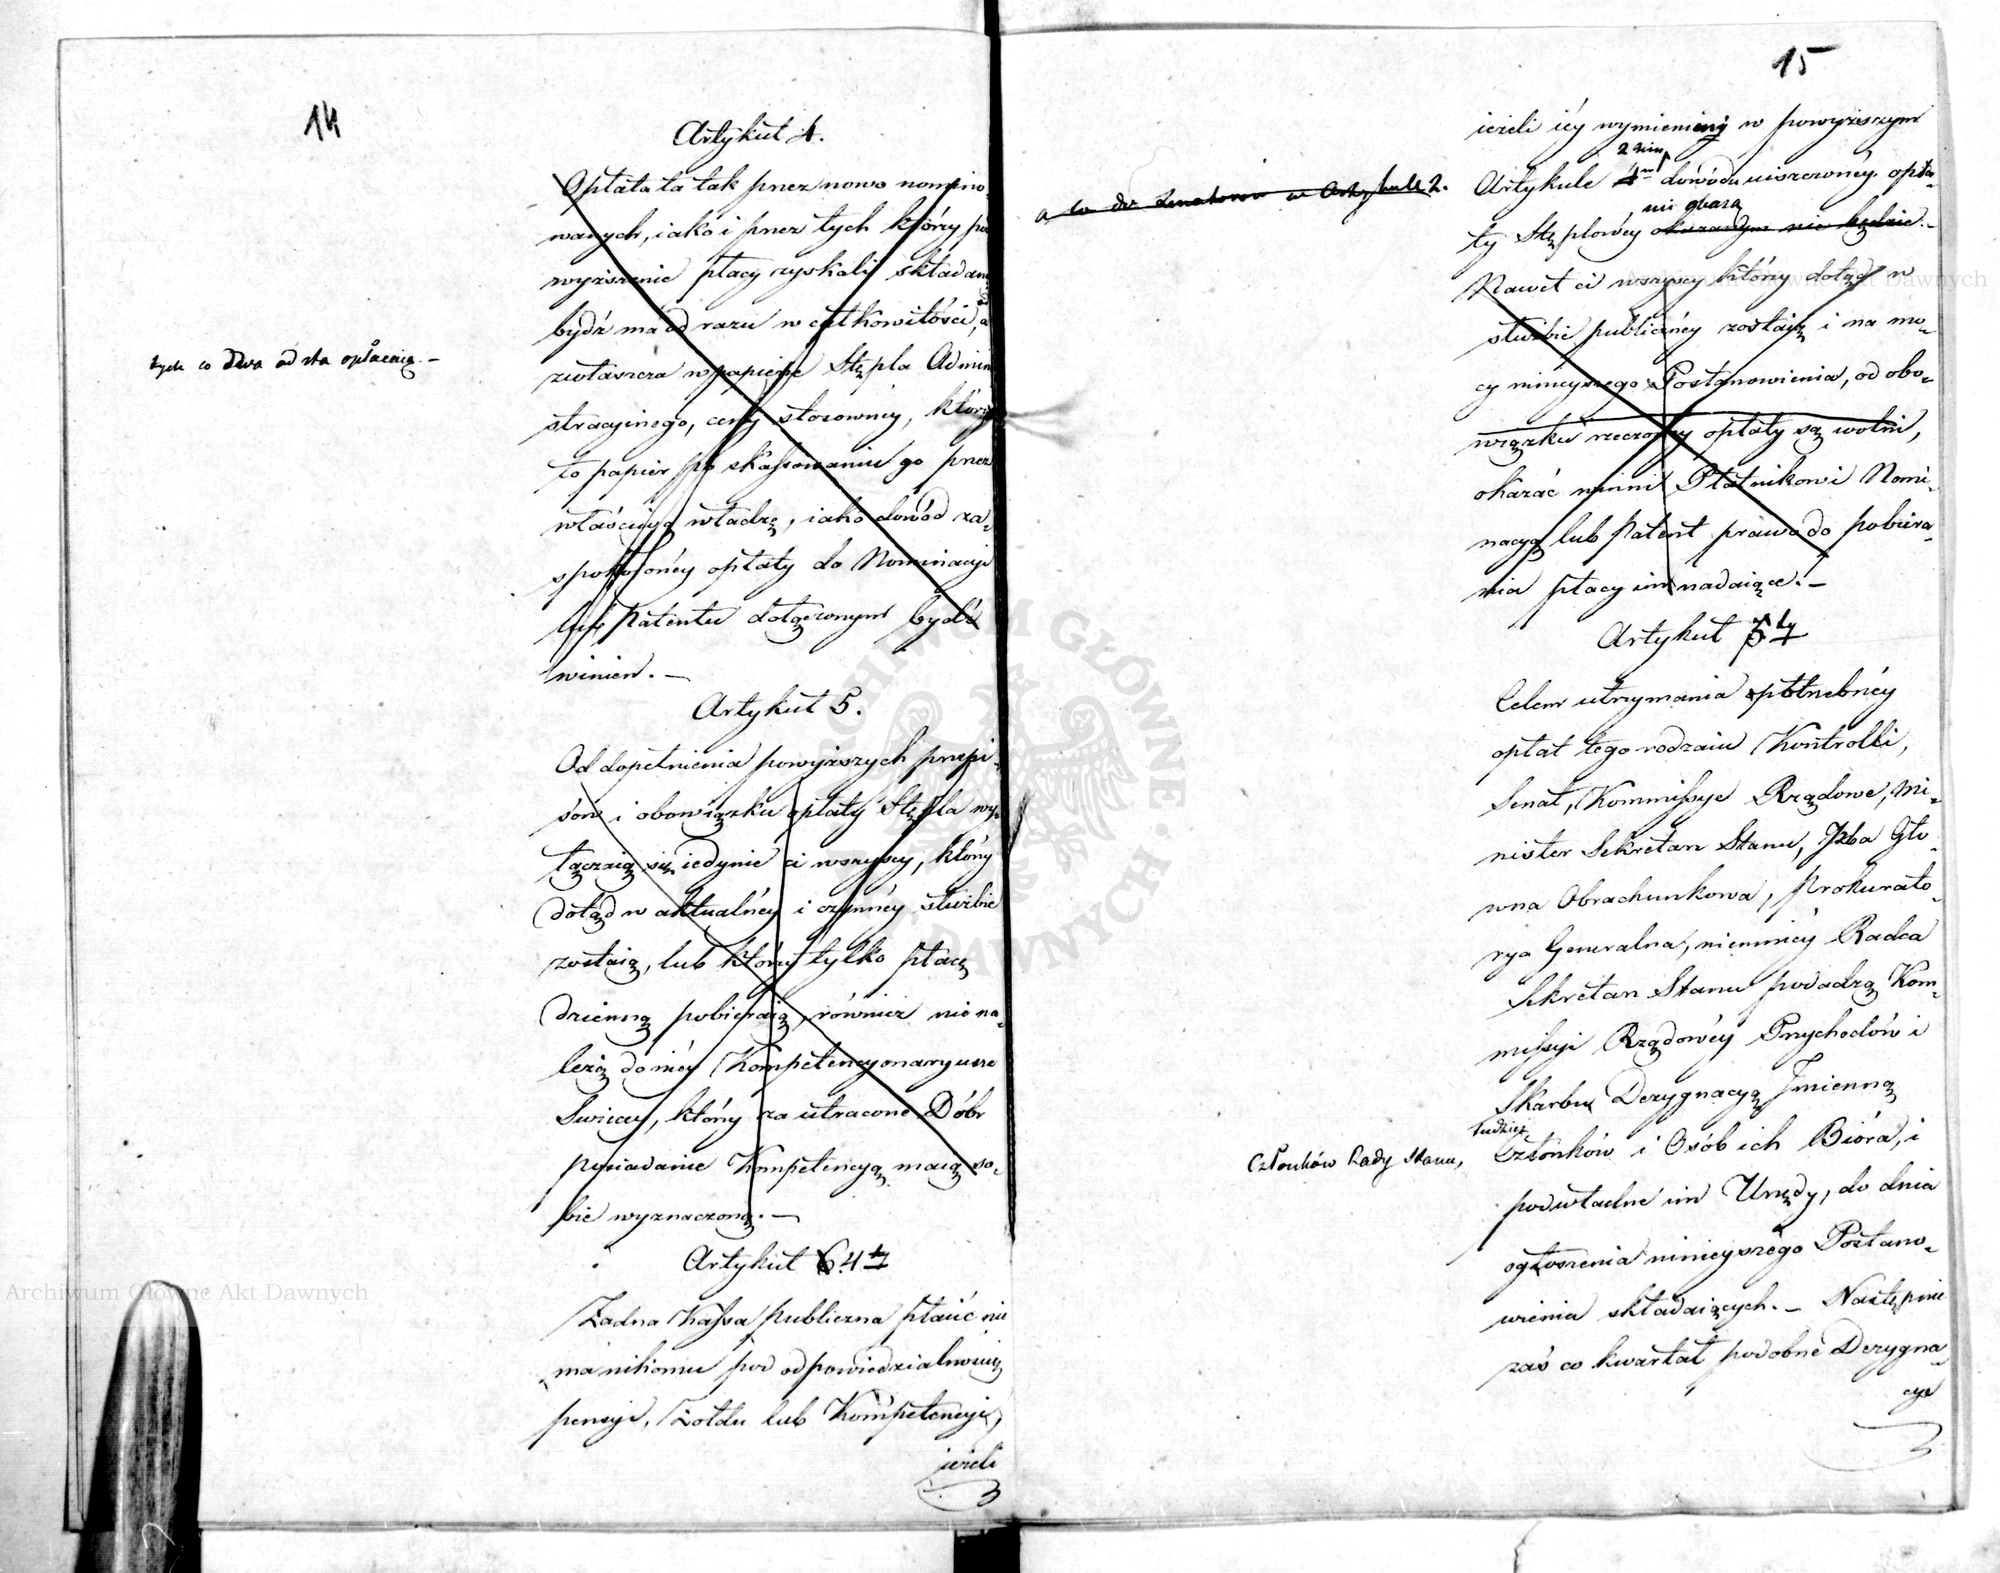 14
Artykuł 4.
Opłata ta tak przez nowo nomino-
wanych, iako i przez tych którzy po
wyższenie płacy zyskali składaną
bydź ma od razu w całkowitości, a
zwłaszcza w papierze Stępla Admini
stracyinego, ceny stosowney, który
to papier po skassowaniu go przez
właściwą władzę, iako dowód za-
spokoionéy opłaty do Nominacyi
lub Patentu dołączonym bydź
winien. —
tych co dwa od sta opłacaią. —
Artykuł 5.
Od dopełnienia powyższych przepi-
sów i obowiązku opłaty Stępla wy-
łączaią się iedynie ci wszyscy, którzy
dotąd w aktualnéy i czynnéy służbie
zostaią, lub którzy tylko płacę
dzienną pobieraią, również nie na-
leżą do niéy Kompetencyonaryusze
Swieccy, którzy za utracone Dóbr
posiadanie Kompetencyą maią so-
bie wyznaczoną. —
Artykuł 6. 4ty
Żadna Kassa publiczna płacić nie
ma nikomu pod odpowiedzialnością
pensyi, Żołdu lub Kompetencyi,
ieżeli
15
ieżeli iéy wymieniony w powyższym
2 gim
Artykule 4m dowodu uiszczonéy opła-
a co do Senatorów w Artykule 2.
nie okażą
ty Stęplowéy okazanym nie będzie. -
Nawet ci wszyscy którzy dotąd w
służbie publicznéy zostaią i na mo-
cy ninieyszego Postanowienia, od obo-
wiązku rzeczonéy opłaty są wolni,
okazać winni Płatnikowi Nomi-
nacyą lub Patent prawo do pobiera-
nia płacy im nadaiące. —
Artykuł 5ty
Celem utrzymania potrzebnéy
opłat tego rodzaiu Kontrolli,
Senat, Kommissye Rządowe, Mi-
nister Sekretarz Stanu, Izba Głó-
wna Obrachunkowa, Prokurato-
rya Generalna, niemniéy Radca
Sekretarz Stanu podadzą Kom-
missyi Rządowéy Przychodów i
Skarbu Dezygnacyą Jmienną
tudzież
Członków Rady Stanu,
Członków i Osób ich Bióra, i
podwładne im Urzędy, do dnia
ogłoszenia ninieyszego Postano-
wienia składaiących. — Następnie
zaś co kwartał podobne Dezygna-
cye